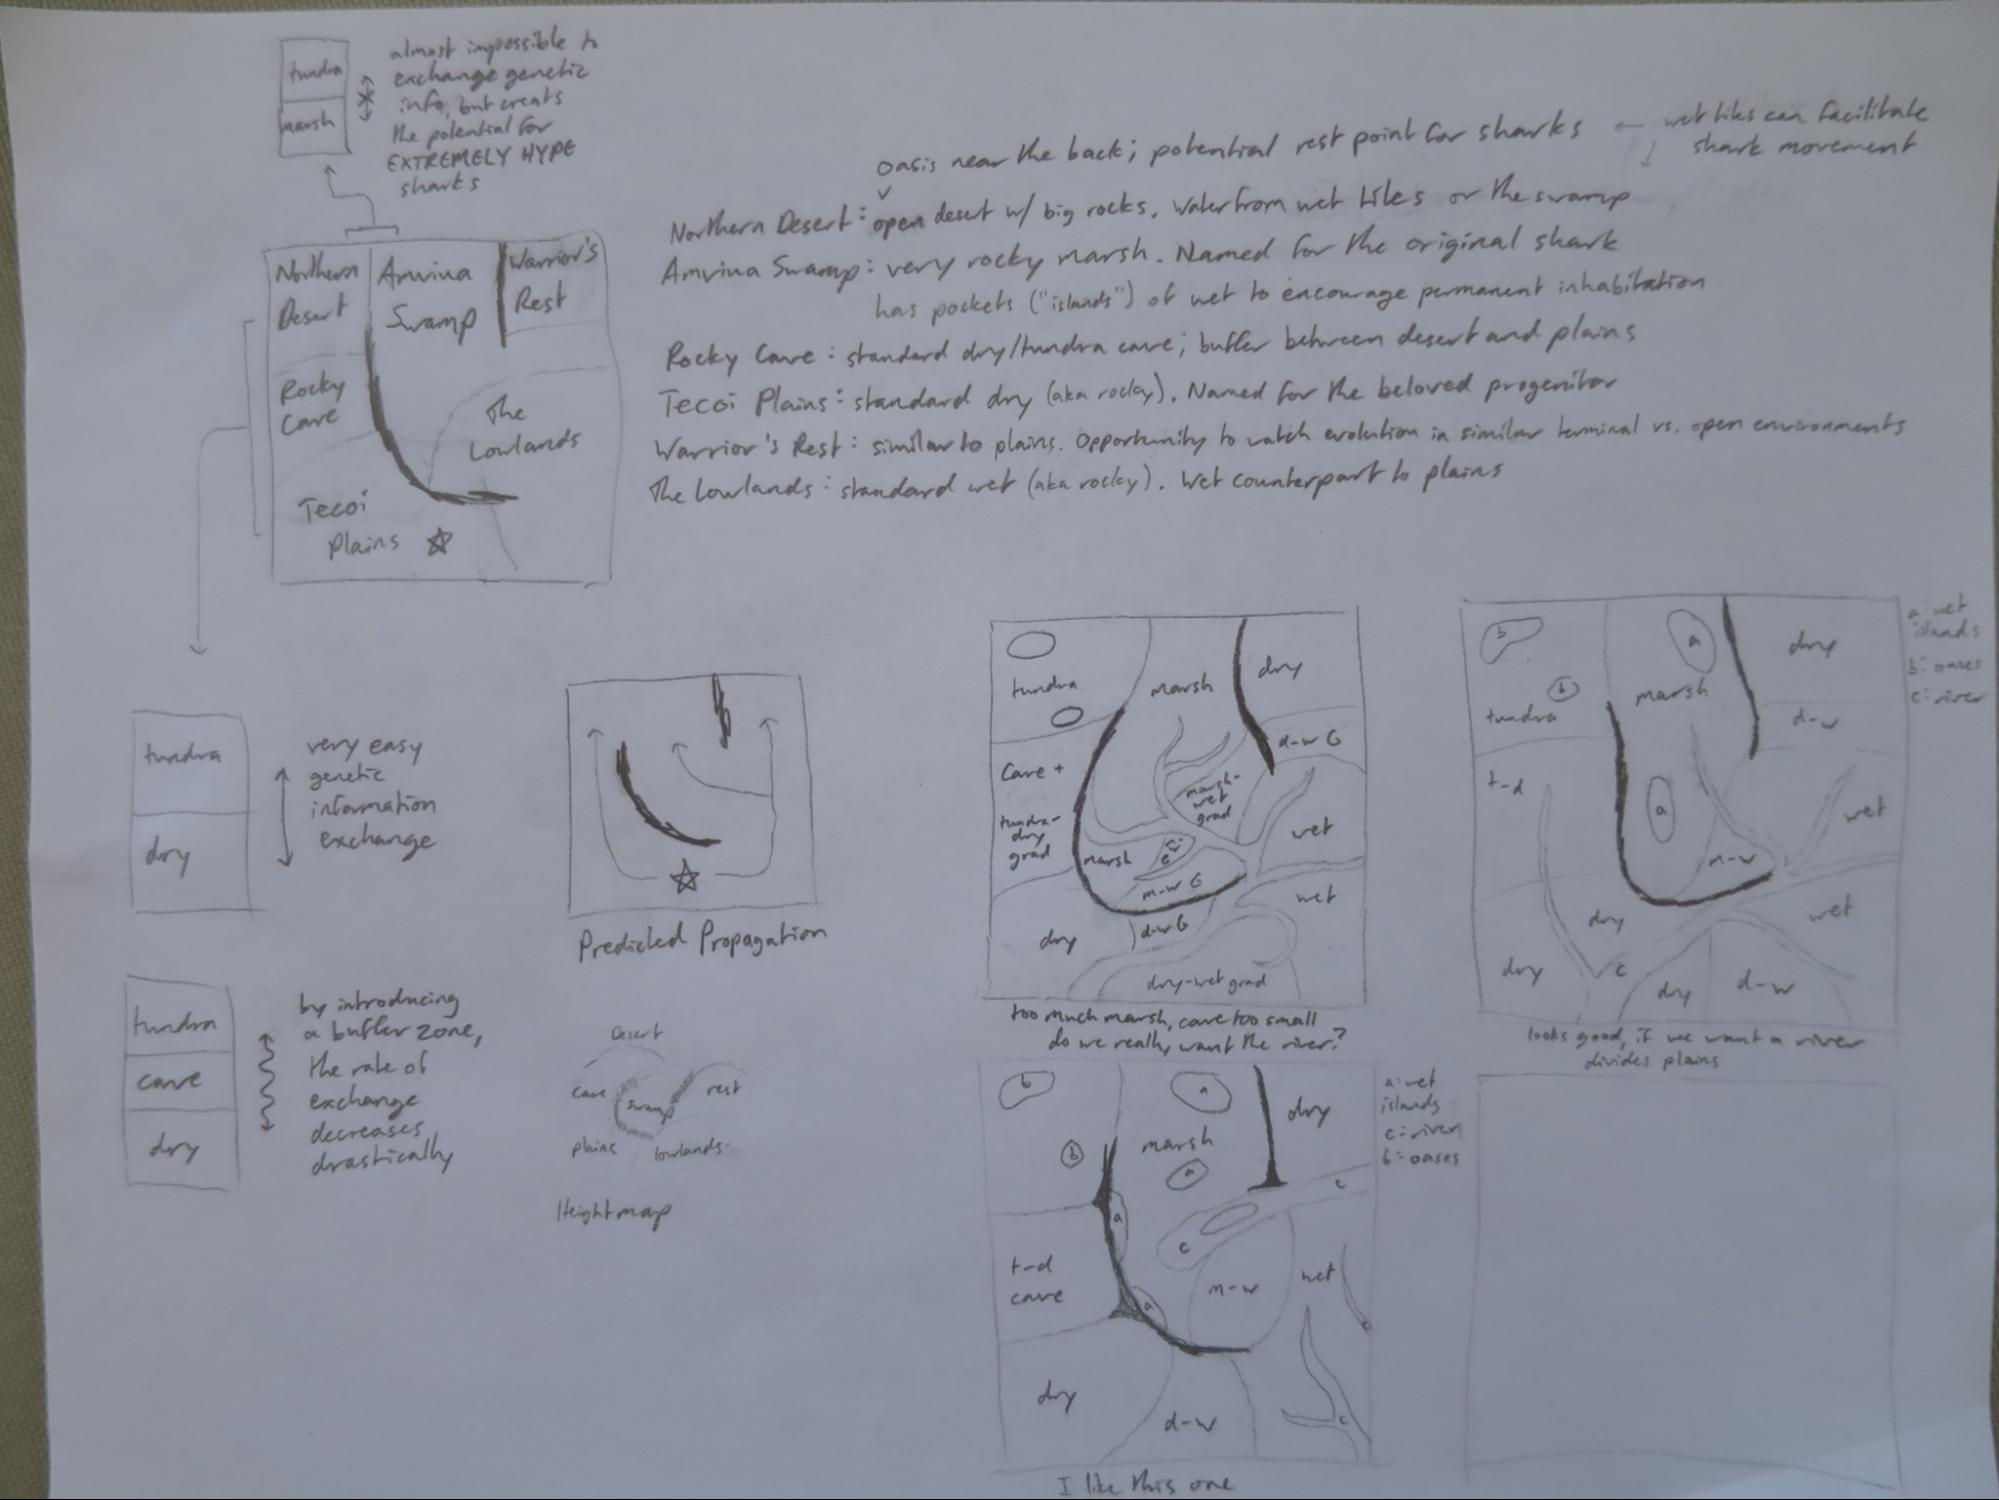 tundra
marsh
almost impossible to
exchange genetic
info, but creats
the potential for
EXTREMELY HYPE
sharks
oasis near the back; potential rest point for sharks ← wet tiles can facilitate
shark movement
Northern Desert: open desert w/ big rocks. Water from wet tiles or the swamp
Amvina Swamp: very rocky marsh. Named for the original shark
has pockets ("islands") of wet to encourage permanent inhabitation
Rocky Cave: standard dry/tundra cave; buffer between desert and plains
Tecoi Plains: standard dry (aka rocky). Named for the beloved progenitor
Warrior's Rest: similar to plains. Opportunity to watch evolution in similar terminal vs. open environments
The Lowlands: standard wet (aka rocky). Wet counterpart to plains
Northern
Desert
Amvina
Swamp
Warrior's
Rest
Rocky
Cave
The
Lowlands
Tecoi
Plains
tundra
dry
very easy
genetic
information
exchange
Predicted Propagation
tundra
cave
dry
by introducing
a buffer zone,
the rate of
exchange
decreases
drastically
Desert
cave
swamp
rest
plains
lowlands
Heightmap
tundra
marsh
dry
d-w G
Cave +
tundra-
dry
grad
marsh-
wet
grad
wet
marsh
m-w G
wet
dry
d-w G
dry-wet grad
too much marsh, cave too small
do we really want the river?
b
a
dry
b
marsh
tundra
d-w
t-d
a
wet
m-w
dry
wet
dry
c
dry
d-w
a: wet
islands
b: oases
c: river
looks good, if we want a river
divides plains
b
a
dry
b
marsh
a
c
a
c
t-d
cave
m-w
wet
a
c
dry
d-w
c
a: wet
islands
c: river
b: oases
I like this one